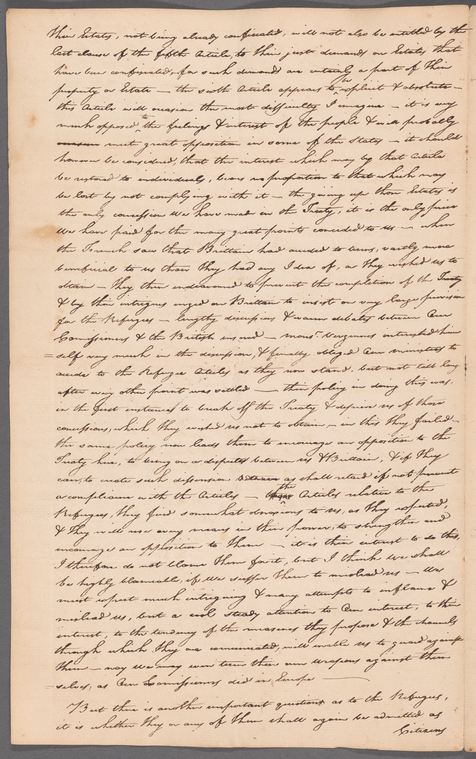 their Estates, not being already confiscated, will not also be entitled by the
last clause of the fifth Article, to their just demands on Estates that
have been confiscated, for such demands are entirely a part of their
property or Estate — the sixth Article appears to explicit & absolute —
this Article will occasion the most difficulty I imagine — it is very
much opposed to the feelings & interest of the people & will probably
meet great opposition in some of the States — it should
however be considered, that the interest which may by that Article
be restored to individuals, bears no proportion to that which may
be lost by not complying with it — the giving up those Estates is
the only concession We have made in the Treaty, it is the only price
We have paid for the many great points conceded to us — when
the French saw that Brittain had acceded to terms, vastly more
beneficial to us than they had any Idea of, or they wished us to
obtain — they then endeavoured to prevent the completion of the Treaty
& by their intrigues urged on Brittain to insist on very large provision
for the Refugees — lengthy discussions & warm debates between Our
Commissioners & the British ensued — Monsr. Vergennes interested him
= self very much in the discussion, & finally obliged Our ministers to
accede to the Refugee Articles as they now stand, but not till long
after every other point was settled — their policy in doing this was,
in the first instance to break off the Treaty & deprive us of those
concessions, which they wished us not to obtain — in this they failed —
the same policy now leads them to encourage an opposition to the
Treaty here, to bring on a dispute between us & Brittain, & if they
can, to create such dissension as shall retard if not prevent
a compliance with the Articles — the Articles relative to the
Refugees, they find somewhat odious to us, as they expected,
& they will use every means in their power, to strengthen and
encourage an opposition to them — it is their interest to do this,
I therefore do not blame them for it, but I think We shall
be highly blameable, if We suffer them to mislead us — We
must expect much intriguing & many attempts to inflame &
mislead us, but a cool steady attention to Our interest, to their
interest, to the tendency of the measures they propose & the channels
through which they are communicated, will enable us to guard against
them — nay We may even turn their own weapons against them
= selves, as Our Commissioners did in Europe —
But there is another important question as to the Refugees,
it is whether they or any of them shall again be admitted as
Citizens